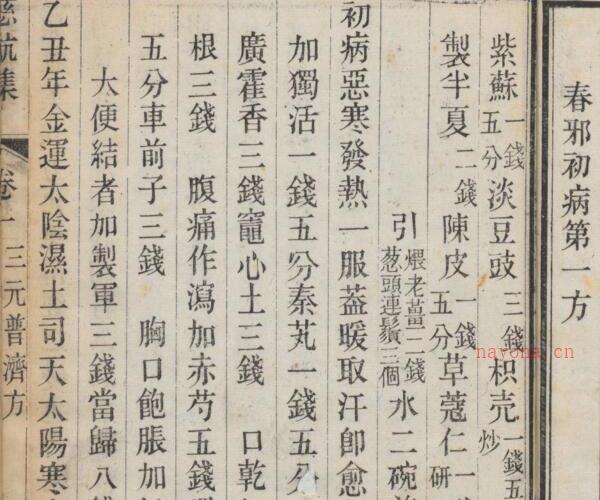 春邪初病第一方
紫蘇一錢五分淡豆豉三錢枳壳一錢五炒
製半夏二錢陳皮一錢五分草蔻仁一研
引煨老薑二錢葱頭連鬚三個水二碗
初病惡寒發熱一服葢暖取汗卽愈
加獨活一錢五分秦艽一錢五分
廣霍香三錢竈心土三錢 口乾
根三錢 腹痛作瀉加赤芍五錢
五分車前子三錢 胸口飽脹加
大便結者加製軍三錢當歸八
乙丑年金運太陰濕土司天太陽寒
航集 卷一 三元普濟方
nayona.cn